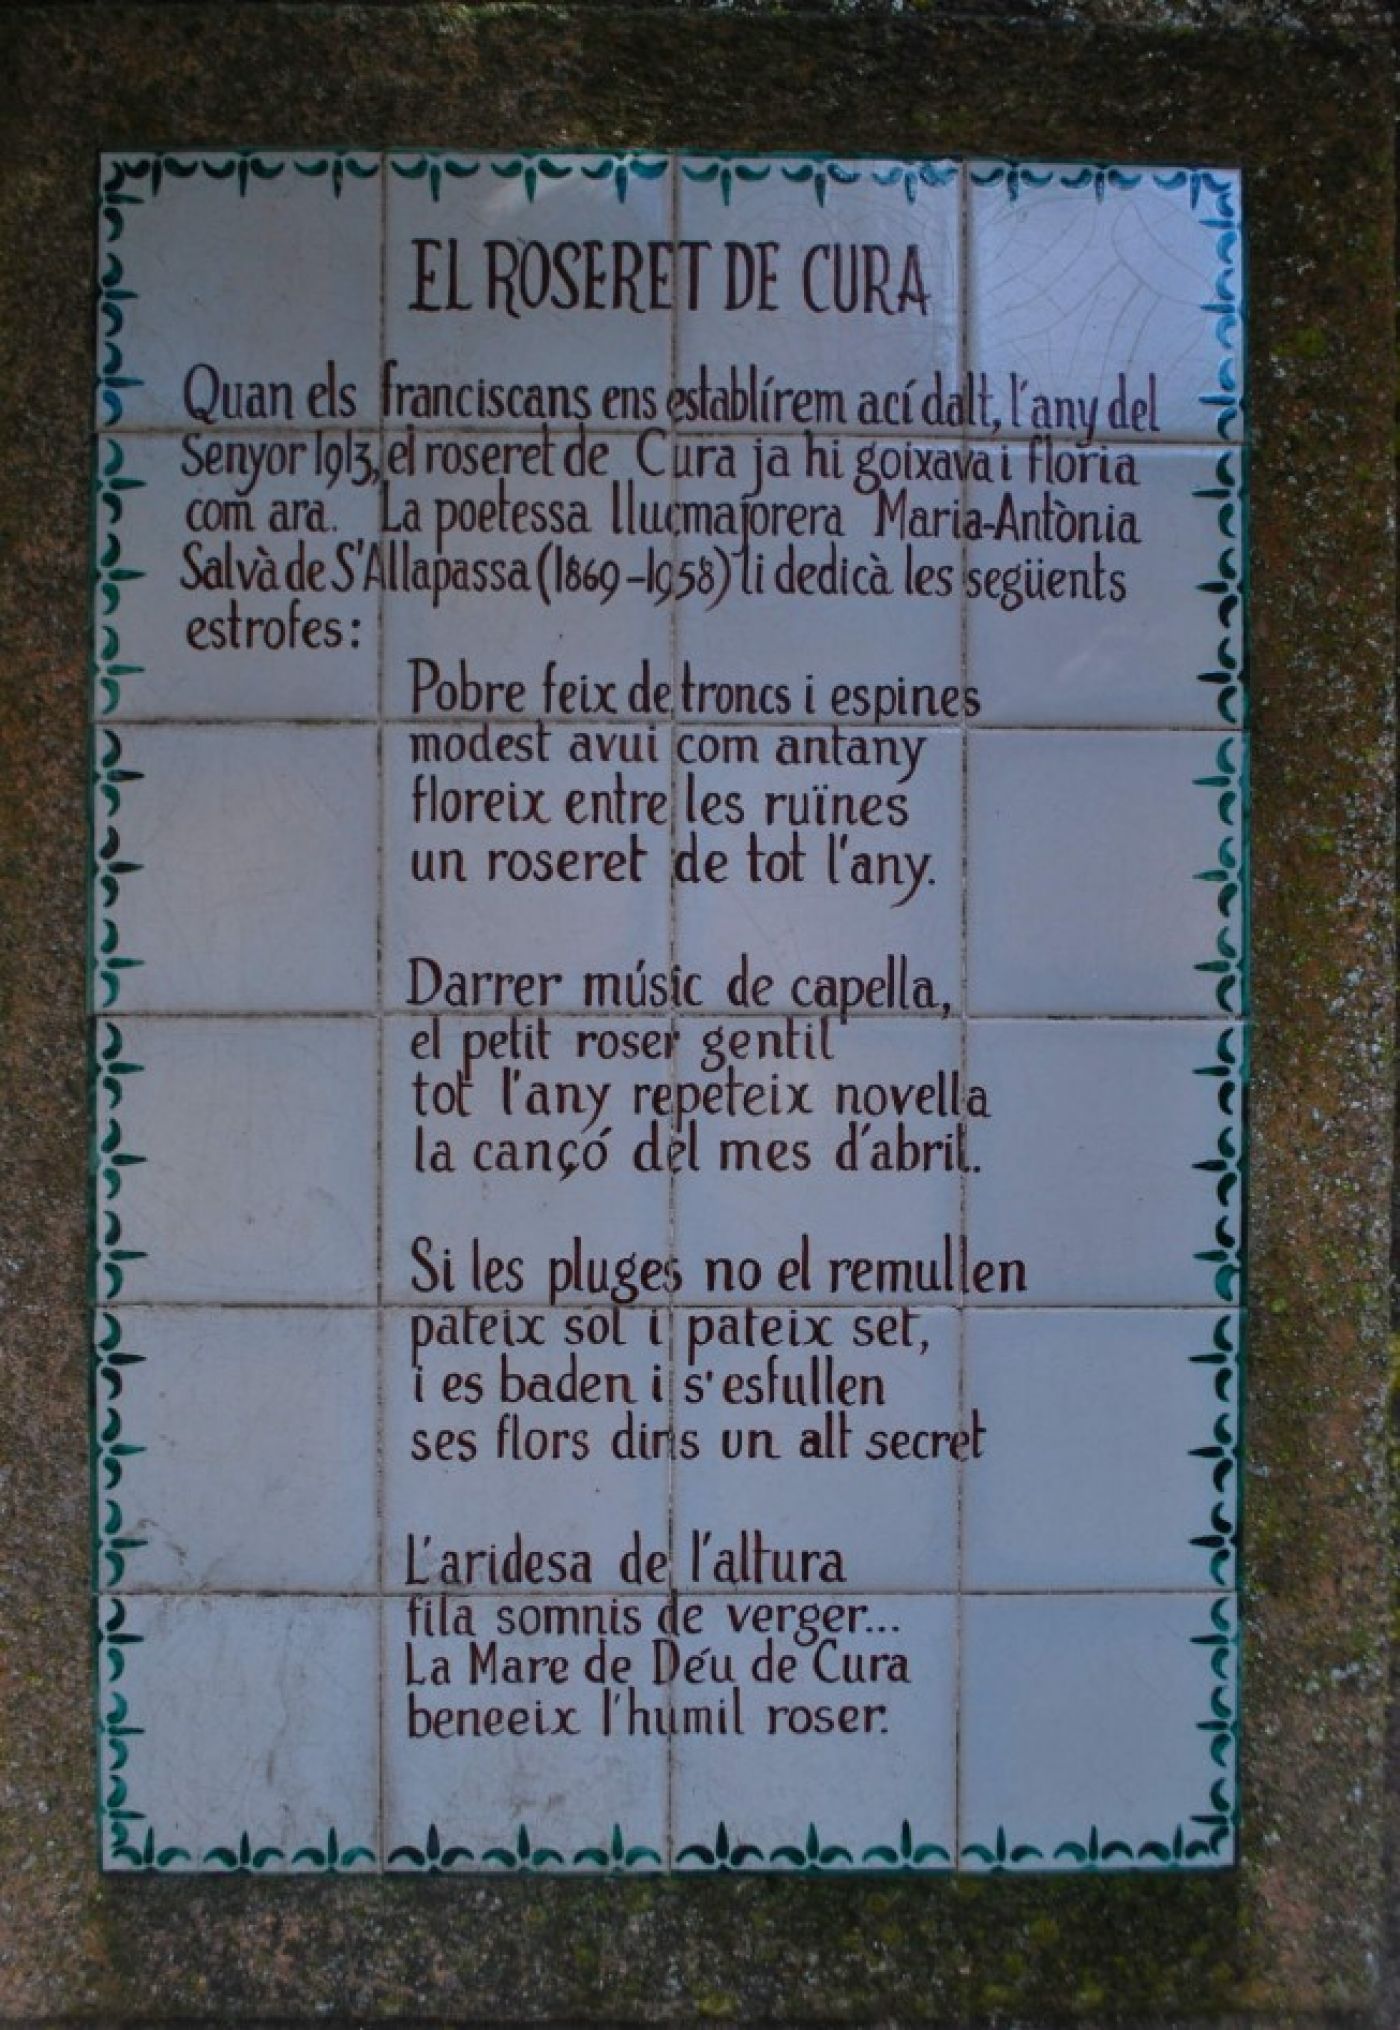 EL ROSERET DE CURA
Quan els franciscans ens establírem ací dalt, l'any del
Senyor 1913, el roseret de Cura ja hi goixava i floria
com ara. La poetessa llucmajorera Maria-Antònia
Salvà de S'Allapassa (1869-1958) li dedicà les següents
estrofes:
Pobre feix de troncs i espines
modest avui com antany
floreix entre les ruïnes
un roseret de tot l'any.
Darrer músic de capella,
el petit roser gentil
tot l'any repeteix novella
la cançó del mes d'abril.
Si les pluges no el remullen
pateix sol i pateix set,
i es baden i s'esfullen
ses flors dins un alt secret
L'aridesa de l'altura
fila somnis de verger...
La Mare de Déu de Cura
beneeix l'humil roser.